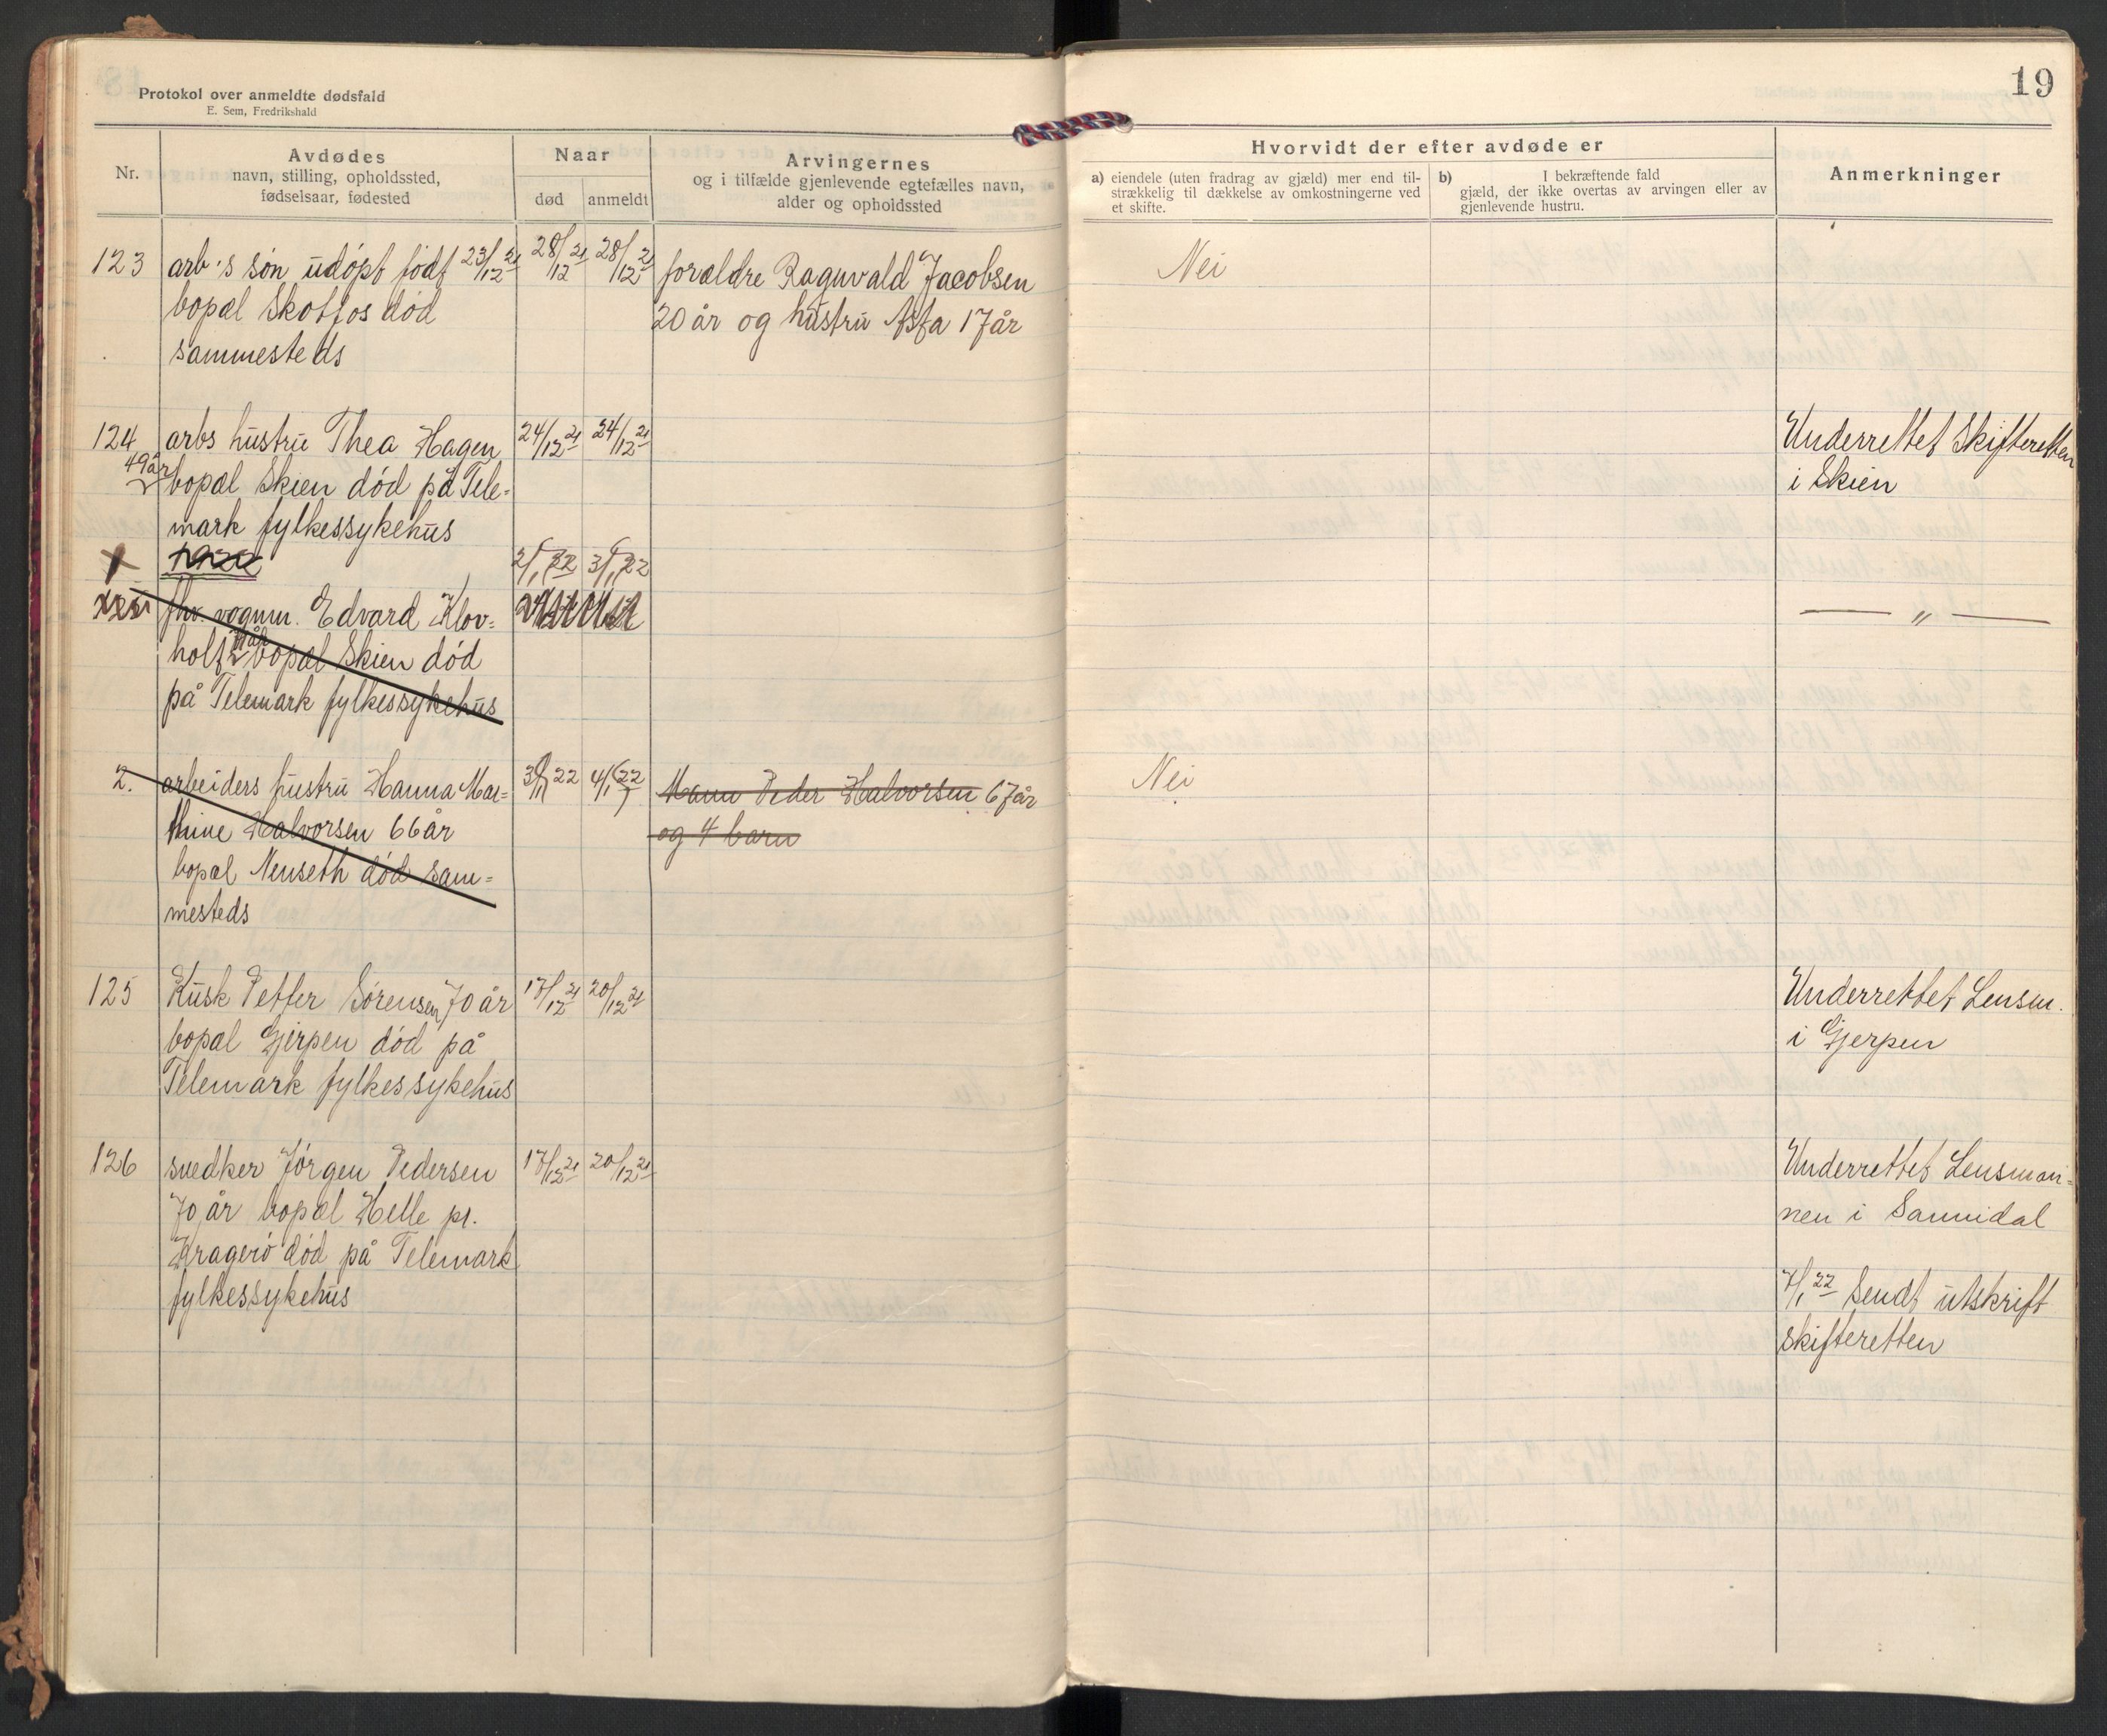 Protokol over anmeldte dødsfald
E. Sem, Fredrikshald
19
Nr.
Avdødes
navn, stilling, opholdssted,
fødselsaar, fødested
Naar
død
anmeldt
Arvingernes
og i tilfælde gjenlevende egtefælles navn,
alder og opholdssted
Hvorvidt der efter avdøde er
a) eiendele (uten fradrag av gjæld) mer end til-
strækkelig til dækkelse av omkostningerne ved
et skifte.
b) I bekræftende fald
gjæld, der ikke overtas av arvingen eller av
gjenlevende hustru.
Anmerkninger
123 arb.s søn udøpt født 23/12 21 28/12 21 28/12 21 forældre Ragnvald Jacobsen Nei
bopæl Skotfos død 20 år og hustru Asta 17 år
sammesteds
124 arbs hustru Thea Hagen 24/12 21 24/12 21 Underrettet Skifteretten
49 år bopæl Skien død på Tele= i Skien
mark fylkessykehus
1922 2/1 22 3/1 22
fhv. vognm. Edvard Klov= — „ —
holt bopæl Skien død
på Telemark fylkessykehus
2. arbeiders hustru Hanna Mar= 3/1 22 4/1 22 Mann Peder Halvorsen 67 år Nei
thine Halvorsen 66 år og 4 barn
bopæl Nenseth død sam=
mesteds
125 Kusk Petter Sørensen 70 år 17/12 21 20/12 21 Underrettet Lensm.
bopæl Gjerpen død på i Gjerpen
Telemark fylkessykehus
126 snedker Jørgen Pedersen 17/12 21 20/12 21 Underrettet Lensman=
70 år bopæl Helle pr. nen i Sannidal
Kragerø død på Telemark
fylkessykehus 7/1 22 Sendt utskrift
skifteretten